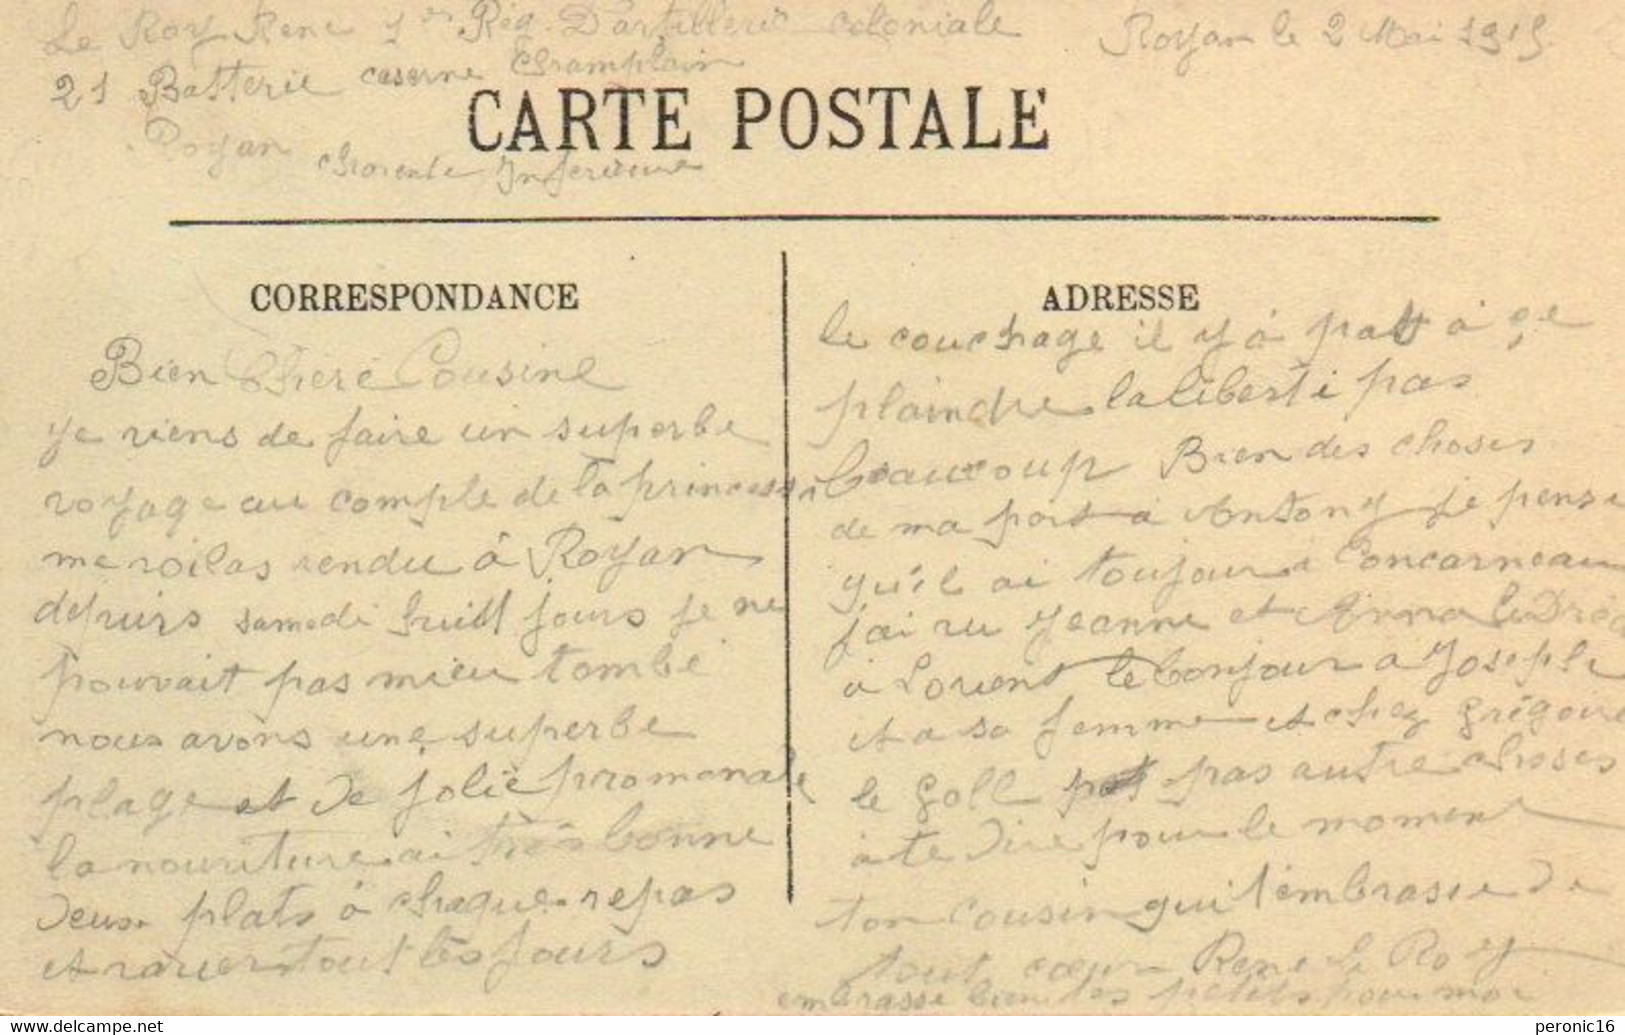 Le Roy Rene 1er Rég. D'artillerie coloniale
Royan le 2 Mai 1915
21 Batterie caserne Champlain
CARTE POSTALE
Royan charente Inferieure
CORRESPONDANCE
Bien Chere Cousine
Je viens de faire un superbe
voyage au compte de la princesse
me voilas rendu à Royan
depuis samedi huit jours je ne
pouvait pas mieu tombé
nous avons une superbe
plage et de jolie promenade
la nouriture ai très bonne
deux plats à chaque repas
et tout les jours
ADRESSE
le couchage il y a pas à ce
plaindre la liberté pas
beaucoup Bien des choses
de ma part à Antony je pense
qu'il ai toujour à Concarneau
j'ai vu Jeanne et Anna
à Lorient le bonjour a Joseph
et a sa femme et chez Grégoire
le Goll pas autre choses
à te dire pour le moment
ton cousin qui t'embrasse de
tout coeur Rene Le Roy
embrasse bien les petits pour moi
peronic16